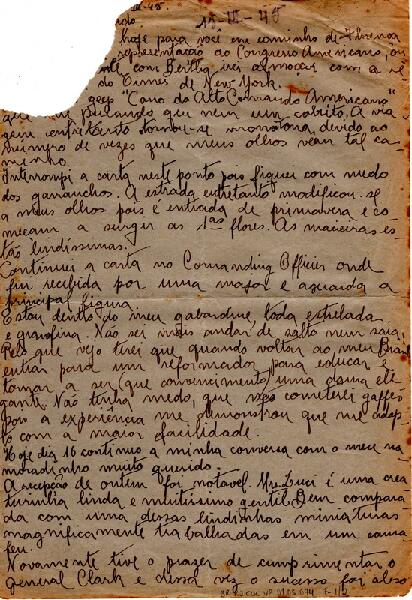 -III-45
15-III-45
hoje para você em caminho de Florença
representação ao Congresso Americano, ou
com Bertha irei almoçar com a
do Times de New-York.
"Carro do Alto Comando Americano"
pulando que nem um cabrito. A via
gem entretanto tornou-se monótona devido ao
número de vezes que meus olhos veem tal ca
minho.
Interrompi a carta neste ponto pois fiquei com medo
dos garranchos. A estrada entretanto modificou-se
a meus olhos pois é entrada de primavera e co
meçam a surgir as 1as flores. As macieiras es
tão lindíssimas.
Continuei a carta no Comanding Officer onde
fui recebida por uma major e aguardo a
principal figura.
Estou dentro do meu gabardine toda estrelada
e grãfina. Não sei mais andar de salto nem saia
Pelo que vejo terei que, quando voltar ao meu Brasil
entrar para um reformador, para educar e
tornar a ser (que convencimento) uma dama ele
gante. Não tenha medo, que não cometerei gaffes
pois a experiência me demonstrou que me adap
to com a maior facilidade.
Hoje dia 16 continuo a minha conversa com o meu na
moradinho muito querido.
A recepção de ontem foi notável. Mrs Luce é uma cria
turinha linda e muitíssimo gentil. Bem compara
da com uma dessas lindinhas miniaturas
magnificamente trabalhadas em um cama
feu.
Novamente tive o prazer de cumprimentar o
general Clark e dessa vez o sucesso foi abso